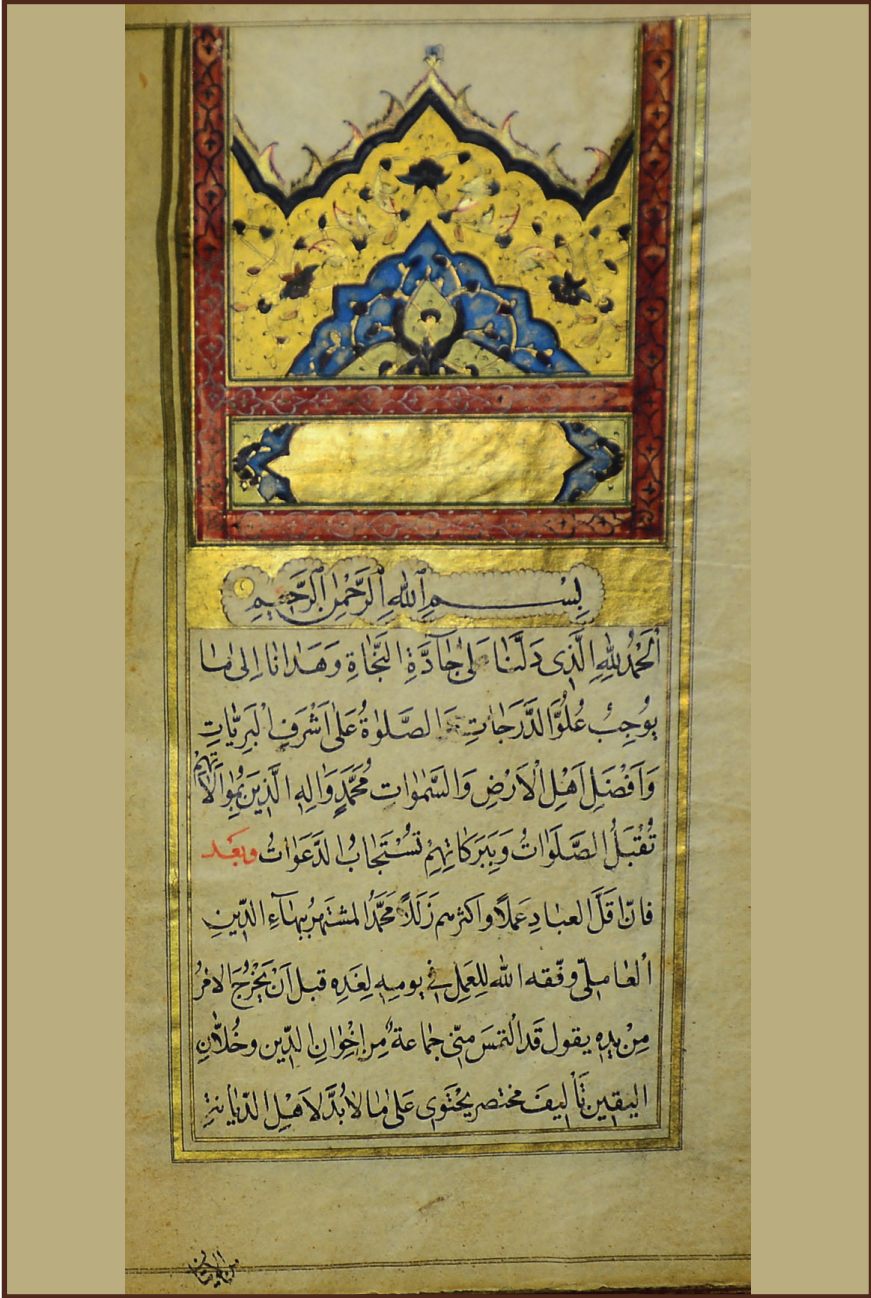 بِسْمِ اللهِ الرَّحْمٰنِ الرَّحِيمِ
اَلْحَمْدُ لِلّٰهِ الَّذِى دَلَّنَا عَلىٰ جَآدَّةِ النَّجَاةِ وَهَدَانَا اِلىٰ مَا
يُوجِبُ عُلُوَّ الدَّرَجَاتِ وَالصَّلوٰةُ عَلىٰ اَشْرَفِ الْبَرِيَّاتِ
وَاَفْضَلِ اَهْلِ الْاَرْضِ وَالسَّمٰوَاتِ مُحَمَّدٍ وَالِهِ الَّذِينَ بِمُوَالَاتِهِمْ
تُقْبَلُ الصَّلَوَاتُ وَبِبَرَكَاتِهِمْ تُسْتَجَابُ الدَّعَوَاتُ وبَعَد
فانّ اَقَلَّ العبادِ عَمَلًا واكثرهم زَلَلًا مُحَمَّدُ المشتهرُ بِبَهآءِ الدّينِ
الْعَامِلىّ وفّقه الله لِلعَمِلِ فى يومِهِ لِغَدِهِ قبل اَنْ يَخْرُجَ الامْرُ
مِنْ يدِهِ يقول قَد الْتمَسَ مِنّى جَمَاعة مِن اِخْوَانِ الدّين وخُلّانِ
اليقين تَأليفَ مختصر يَحْتَوى عَلىٰ مَا لابُدَّ لاَهْلِ الدّيانةِ